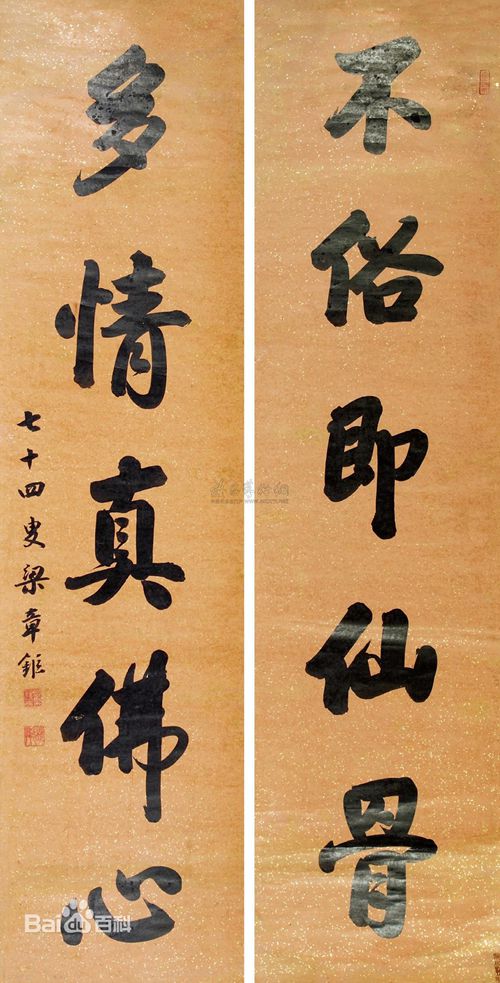 不俗即仙骨
多情真佛心
七十四叟梁章鉅
Bai百科